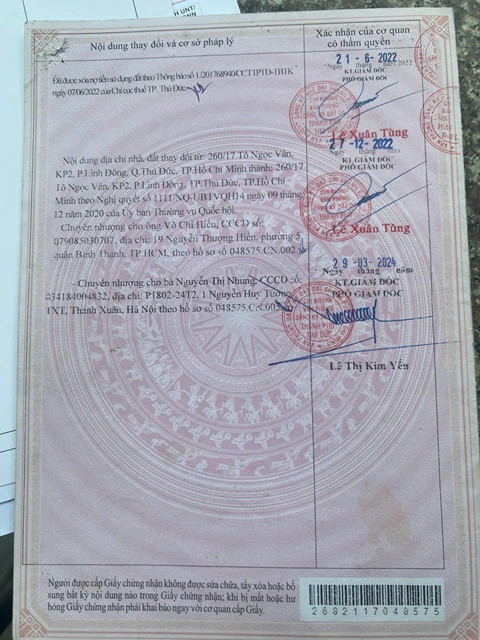 Nội dung thay đổi và cơ sở pháp lý
Xác nhận của cơ quan
có thẩm quyền
Đã được xóa nợ tiền sử dụng đất theo Thông báo số
ngày 07/06/2022 của Chi cục thuế TP. Thủ Đức.
21-6-2022
Ngày tháng năm 2022
KT.GIÁM ĐỐC
PHÓ GIÁM ĐỐC
Lê Xuân Tùng
Nội dung địa chỉ nhà, đất thay đổi từ: 260/17 Tô Ngọc Vân,
KP2, P.Linh Đông, Q.Thủ Đức, TP.Hồ Chí Minh thành: 260/17
Tô Ngọc Vân, KP2, P.Linh Đông, TP.Thủ Đức, TP.Hồ Chí
Minh theo Nghị quyết số 1111/NQ-UBTVQH14 ngày 09 tháng
12 năm 2020 của Ủy ban Thường vụ Quốc hội.
Chuyển nhượng cho ông Võ Chí Hiếu, CCCD số:
079085030707, địa chỉ: 19 Nguyễn Thượng Hiền, phường 5,
quận Bình Thạnh, TP.HCM, theo hồ sơ số 048575.CN.002
27-12-2022
Ngày tháng năm
KT.GIÁM ĐỐC
PHÓ GIÁM ĐỐC
Lê Xuân Tùng
- Chuyển nhượng cho bà Nguyễn Thị Nhung, CCCD số:
034184004832, địa chỉ: P1802-24T2, 1 Nguyễn Huy Tưởng,
TXT, Thanh Xuân, Hà Nội theo hồ sơ số 048575.CN.003
29-03-2024
Ngày tháng năm
KT.GIÁM ĐỐC
PHÓ GIÁM ĐỐC
Lê Thị Kim Yến
Người được cấp Giấy chứng nhận không được sửa chữa, tẩy xóa hoặc bổ
sung bất kỳ nội dung nào trong Giấy chứng nhận; khi bị mất hoặc hư
hỏng Giấy chứng nhận phải khai báo ngay với cơ quan cấp Giấy.
2682117048575